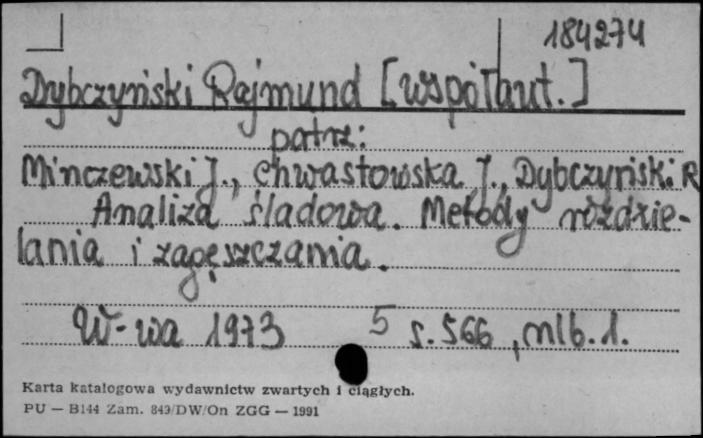 184274
Dybczyński Rajmund [współaut.]
patrz:
Minczewski J., Chwastowska J., Dybczyński R
Analiza śladowa. Metody rozdzie-
lania i zagęszczania.
W-wa 1973 5 s. 566, nlb. 1.
Karta katalogowa wydawnictw zwartych i ciągłych.
PU — B144 Zam. 843/DW/On ZGG — 1991